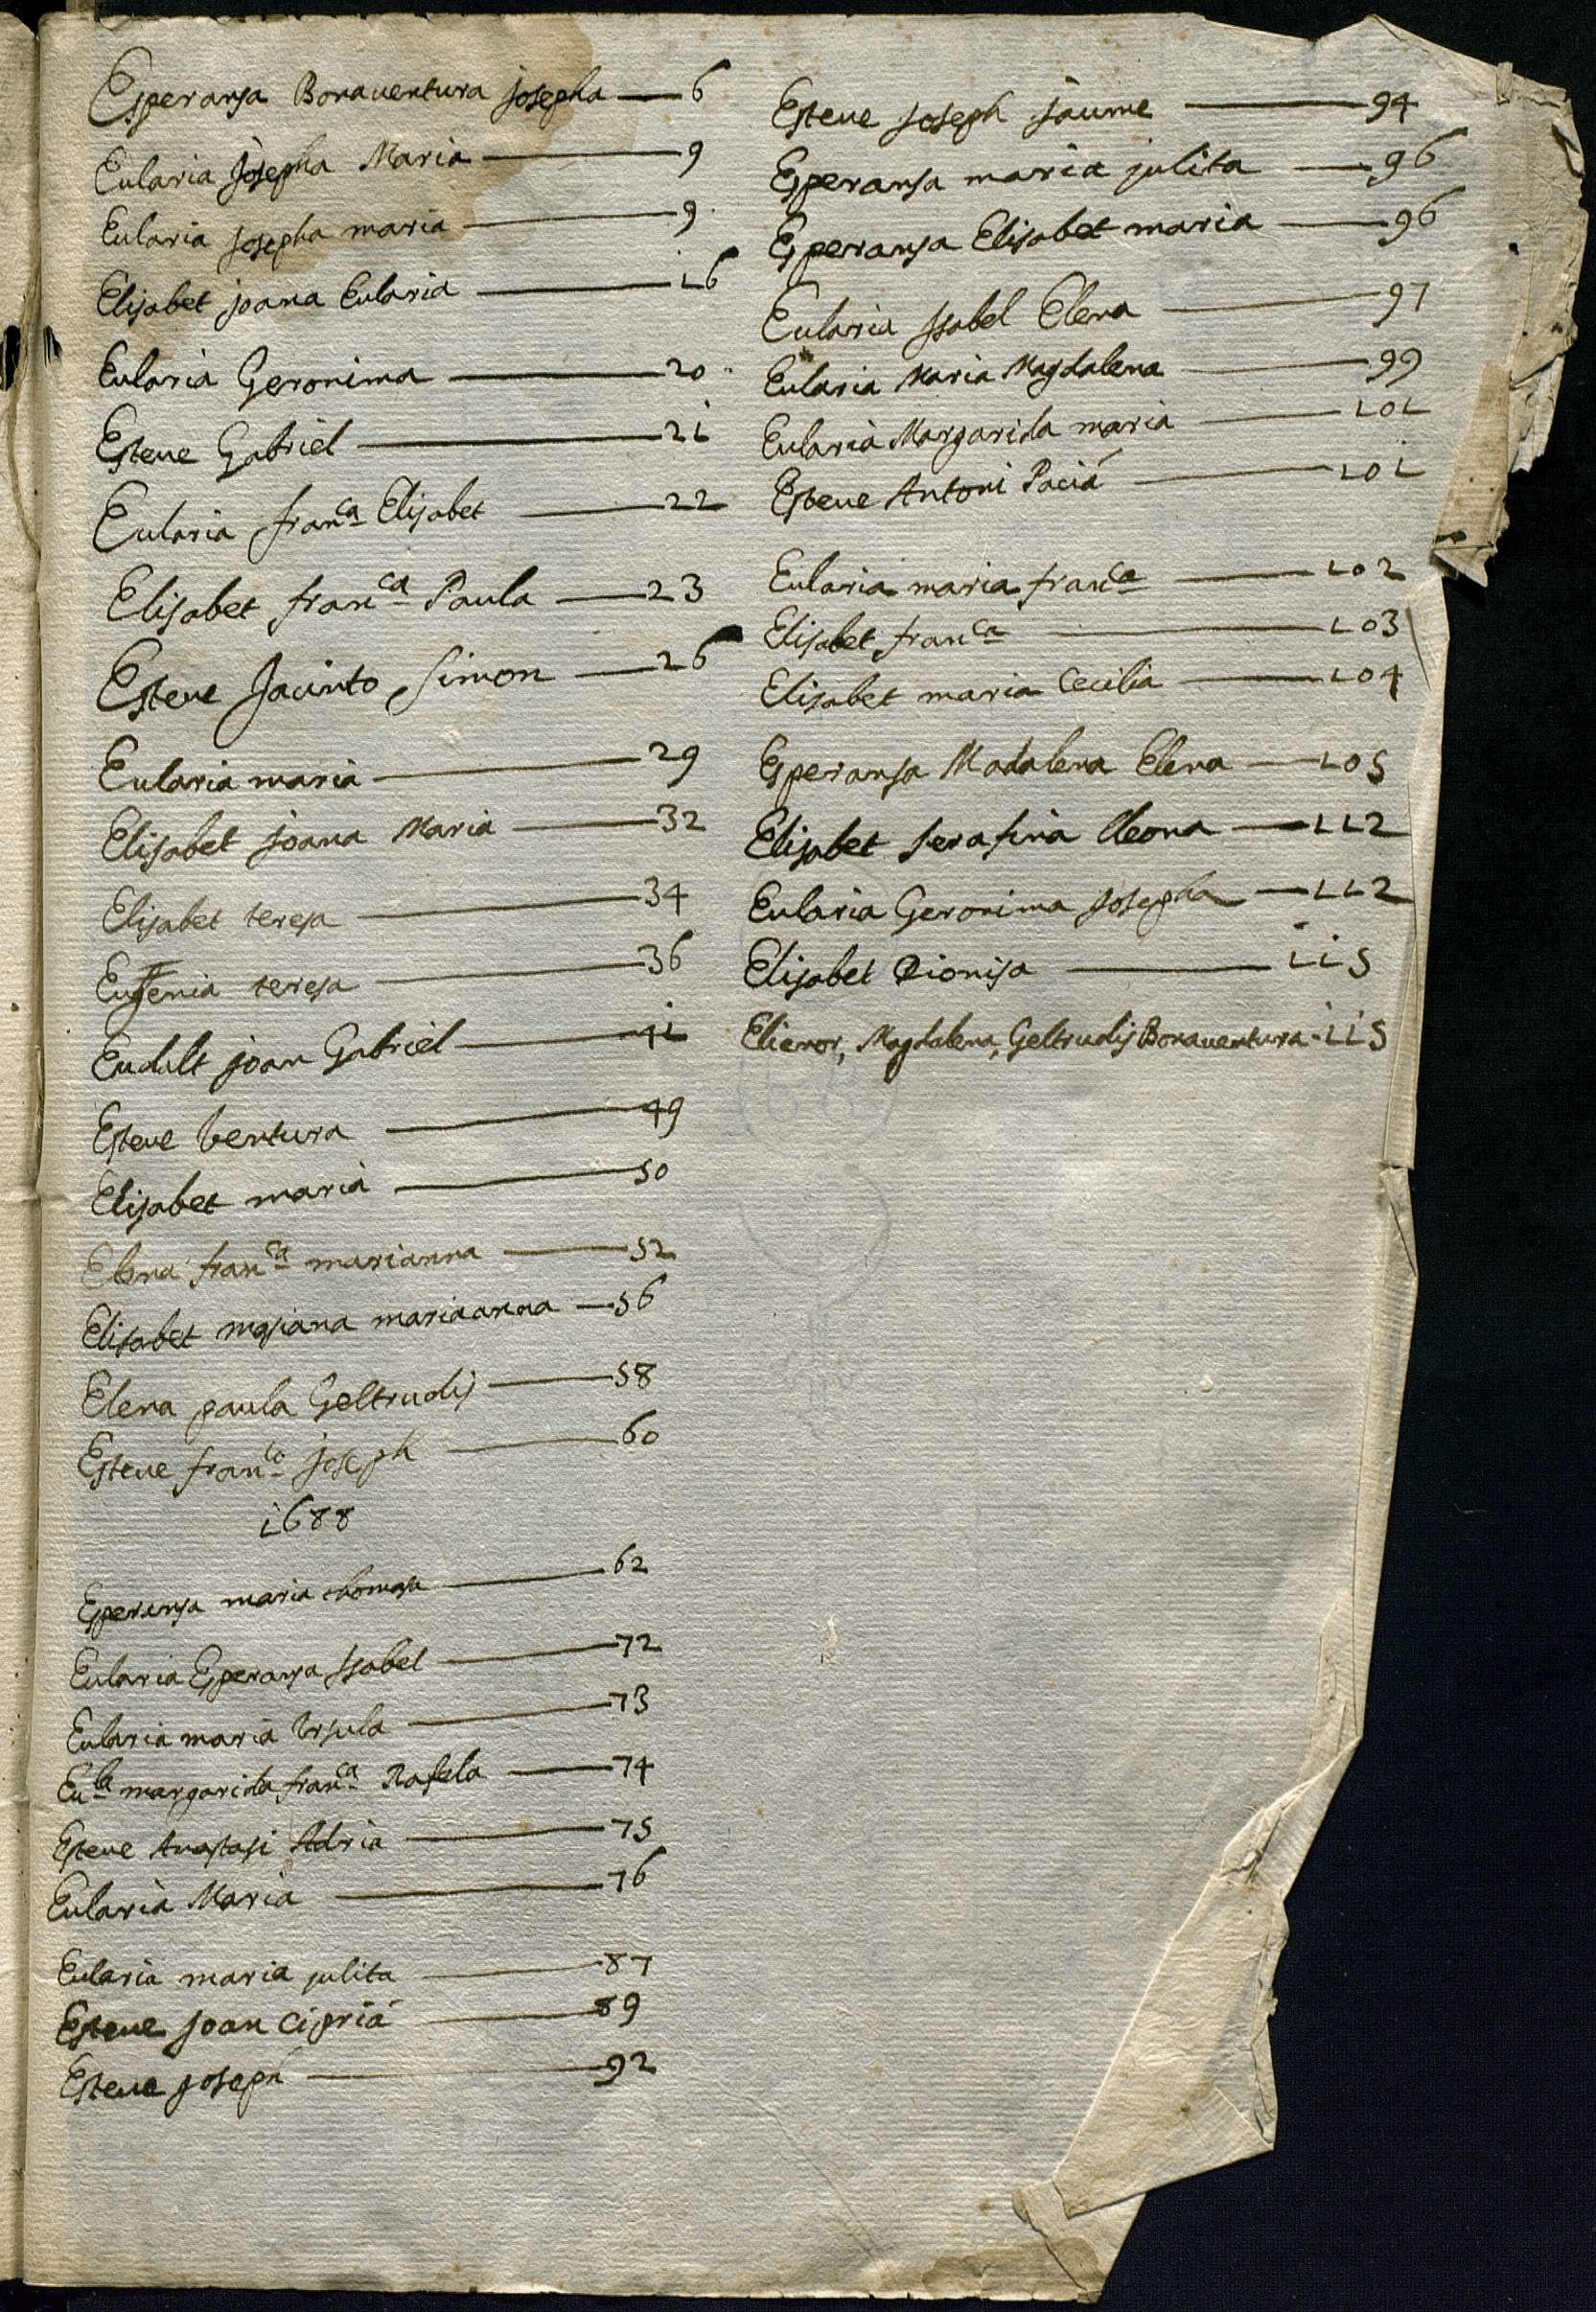 Esperansa Bonauentura josepha — 6
Eularia josepha Maria — 9
Eularia josepha maria — 9
Elisabet joana Eularia — i6
Eularia Geronima — 20
Esteue Gabriel — 2i
Eularia fran^ca Elisabet — 22
Elisabet fran^ca Paula — 23
Esteue Jacinto Simon — 26
Eularia maria — 29
Elisabet joana Maria — 32
Elisabet teresa — 34
Eugenia teresa — 36
Eudalt joan Gabriel — 4i
Esteue Ventura — 49
Elisabet maria — 50
Elena fran^ca marianna — 52
Elisabet mariana mariaanna — 56
Elena paula Geltrudis — 58
Esteue fran^co joseph — 60
i688
Esperansa maria thomasa — 62
Eularia Esperansa Isabel — 72
Eularia maria Vrsula — 73
Eu^la margarida fran^ca Rafela — 74
Esteue Anastasi Adria — 75
Eularia Maria — 76
Eularia maria julita — 87
Esteue Joan Ciprià — 89
Esteue joseph — 92
Esteue joseph jaume — 94
Esperansa maria julita — 96
Esperansa Elisabet maria — 96
Eularia Isabel Elena — 97
Eularia Maria Magdalena — 99
Eularia Margarida maria — i0i
Esteue Antoni Pacià — i0i
Eularia maria fran^ca — i02
Elisabet fran^ca — i03
Elisabet maria Cecilia — i04
Esperansa Madalena Elena — i05
Elisabet serafina Cleona — ii2
Eularia Geronima josepha — ii2
Elisabet Dionisa — ii5
Elienor, Magdalena, Geltrudis Bonauentura - ii5